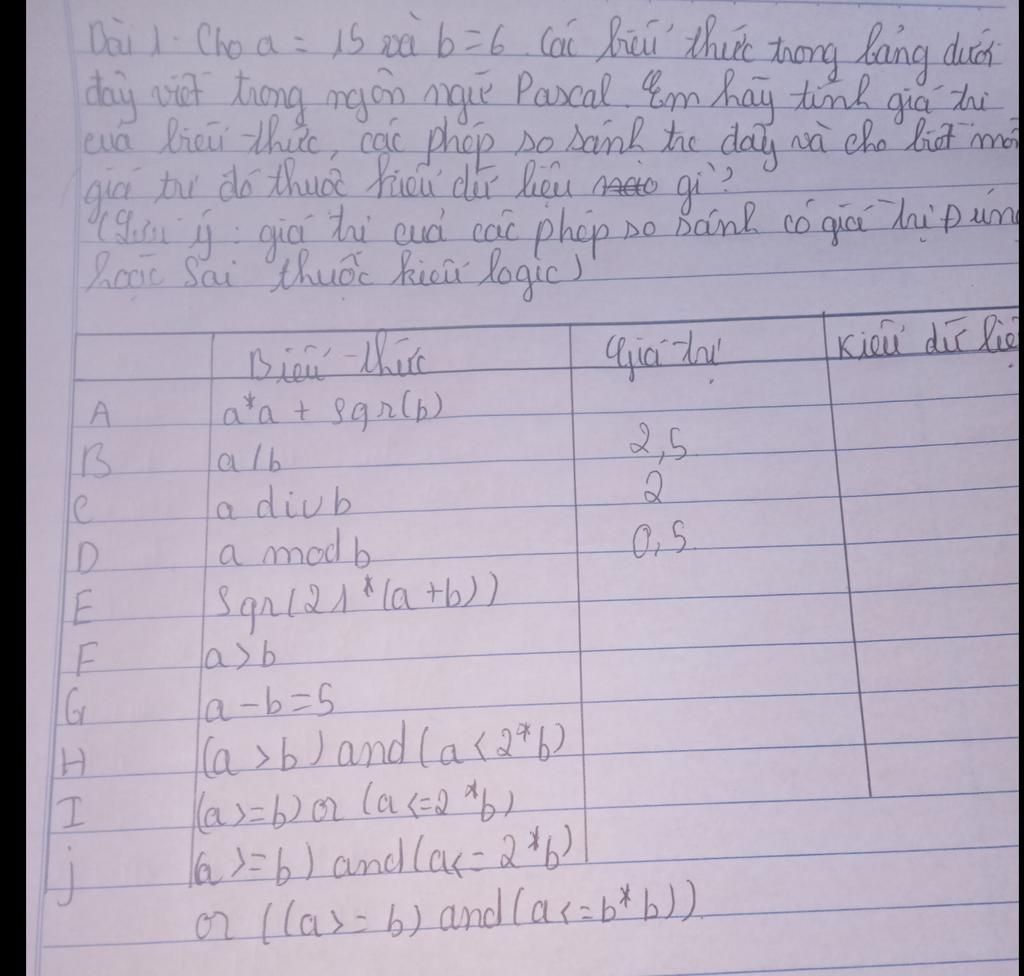 Bài 1. Cho a = 15 và b = 6. Các biểu thức trong bảng dưới
đây viết trong ngôn ngữ Pascal. Em hãy tính giá trị
của biểu thức, các phép so sánh trc đây và cho biết mỗi
giá trị đó thuộc kiểu dữ liệu gì?
(Lưu ý: giá trị của các phép so sánh có giá trị Đúng
hoặc Sai thuộc kiểu logic)
Biểu thức Giá trị Kiểu dữ liệ
A a*a + sqr(b)
B a/b 2,5
C a div b 2
D a mod b 0,5
E Sqr(21*(a+b))
F a>b
G a-b=5
H (a>b) and (a<2*b)
I (a>=b) or (a<=2*b)
j (a>=b) and (a<=2*b)
or ((a>=b) and (a<=b*b))